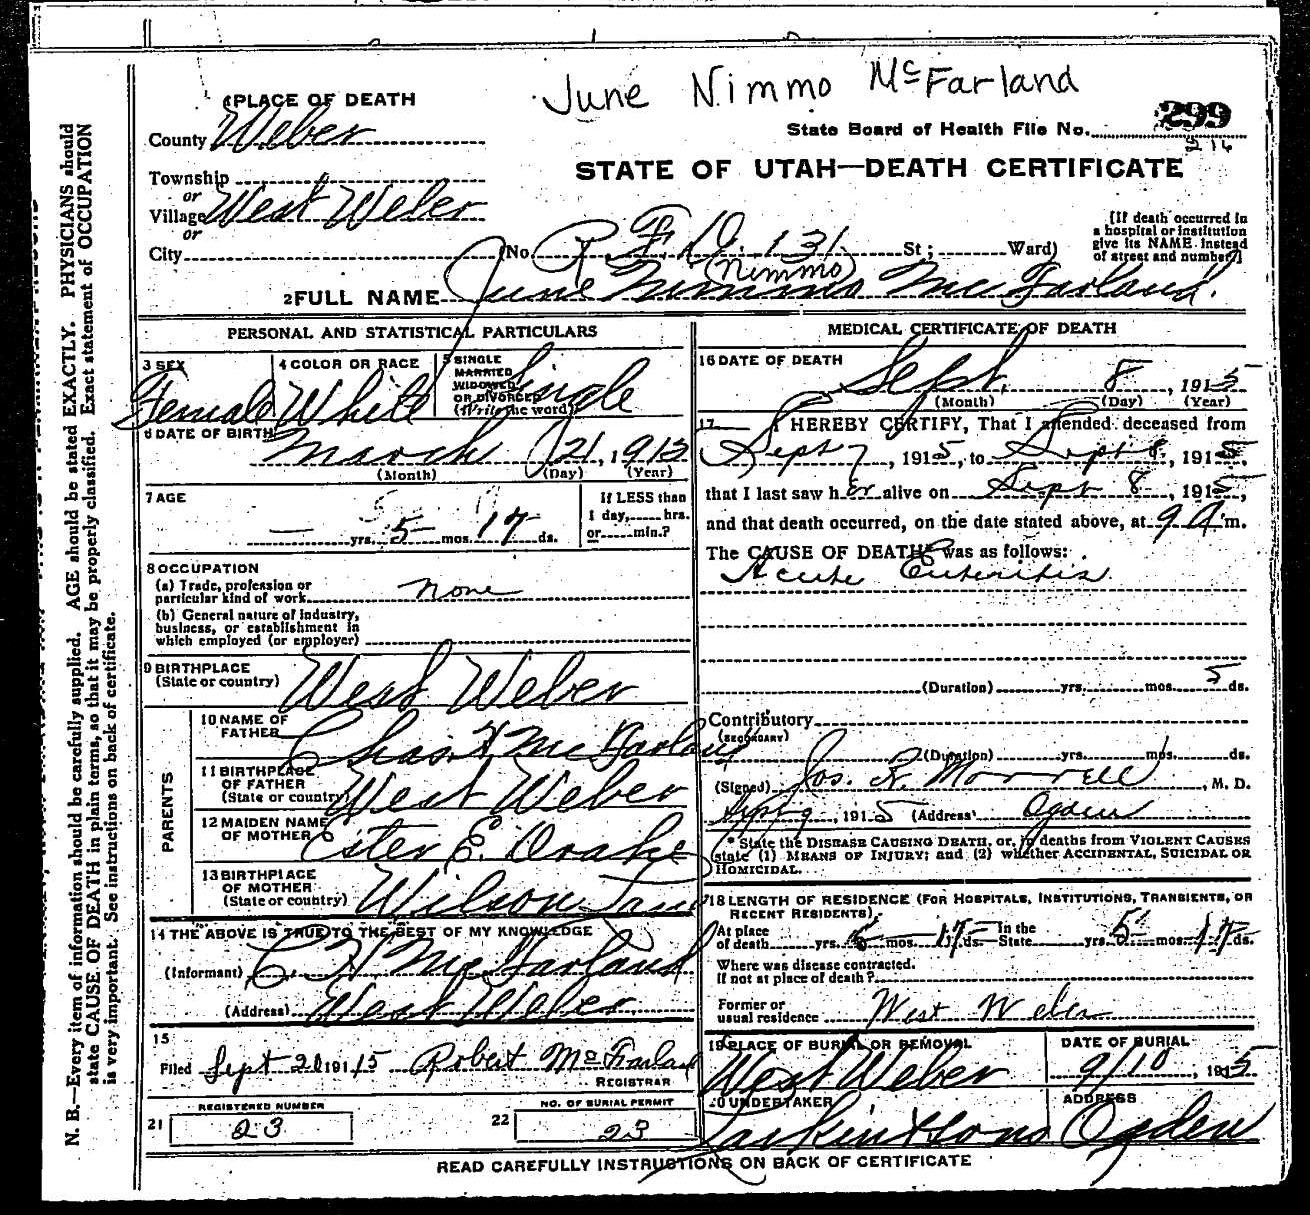 June Nimmo McFarland
1 PLACE OF DEATH
County Weber
State Board of Health File No. 299
STATE OF UTAH—DEATH CERTIFICATE
Township
or
Village West Weber
or
City (No. R. F. D. 131. St; Ward)
(If death occurred in
a hospital or institution
give its NAME instead
of street and number)
(Nimmo)
2 FULL NAME June Nimmo McFarland.
PERSONAL AND STATISTICAL PARTICULARS
3 SEX Female
4 COLOR OR RACE White
5 SINGLE
MARRIED
WIDOWED
OR DIVORCED
(Write the word) Single
6 DATE OF BIRTH March 21, 1915
(Month) (Day) (Year)
7 AGE
— yrs. 5 mos. 17 ds.
If LESS than
1 day, hrs.
or min.?
8 OCCUPATION
(a) Trade, profession or
particular kind of work none
(b) General nature of industry,
business, or establishment in
which employed (or employer)
9 BIRTHPLACE
(State or country) West Weber
PARENTS
10 NAME OF
FATHER Chas. H McFarland
11 BIRTHPLACE
OF FATHER
(State or country) West Weber
12 MAIDEN NAME
OF MOTHER Ester E. Drake
13 BIRTHPLACE
OF MOTHER
(State or country) Wilson Lane
14 THE ABOVE IS TRUE TO THE BEST OF MY KNOWLEDGE
(Informant) C. H McFarland
(Address) West Weber
15
Filed Sept 20 1915 Robert McFarland
REGISTRAR
REGISTERED NUMBER
21 23
NO. OF BURIAL PERMIT
22 23
MEDICAL CERTIFICATE OF DEATH
16 DATE OF DEATH Sept. 8, 1915
(Month) (Day) (Year)
17 I HEREBY CERTIFY, That I attended deceased from
Sept 7, 1915, to Sept 8, 1915,
that I last saw her alive on Sept 8, 1915,
and that death occurred, on the date stated above, at 9 A m.
The CAUSE OF DEATH* was as follows:
Acute Enteritis
(Duration) yrs. mos. 5 ds.
Contributory
(SECONDARY)
(Duration) yrs. mos. ds.
(Signed) Jos. R. Morrell, M. D.
Sept 9, 1915 (Address) Ogden
* State the DISEASE CAUSING DEATH, or, in deaths from VIOLENT CAUSES
state (1) MEANS OF INJURY; and (2) whether ACCIDENTAL, SUICIDAL OR
HOMICIDAL.
18 LENGTH OF RESIDENCE (FOR HOSPITALS, INSTITUTIONS, TRANSIENTS, OR
RECENT RESIDENTS)
At place
of death yrs. 5 mos. 17 ds. In the
State yrs. 5 mos. 17 ds.
Where was disease contracted.
If not at place of death?
Former or
usual residence West Weber
19 PLACE OF BURIAL OR REMOVAL
West Weber
DATE OF BURIAL
9/10, 1915
20 UNDERTAKER
Larkin & Sons
ADDRESS
Ogden
READ CAREFULLY INSTRUCTIONS ON BACK OF CERTIFICATE
N. B.—Every item of information should be carefully supplied. AGE should be stated EXACTLY. PHYSICIANS should
state CAUSE OF DEATH in plain terms, so that it may be properly classified. Exact statement of OCCUPATION
is very important. See instructions on back of certificate.